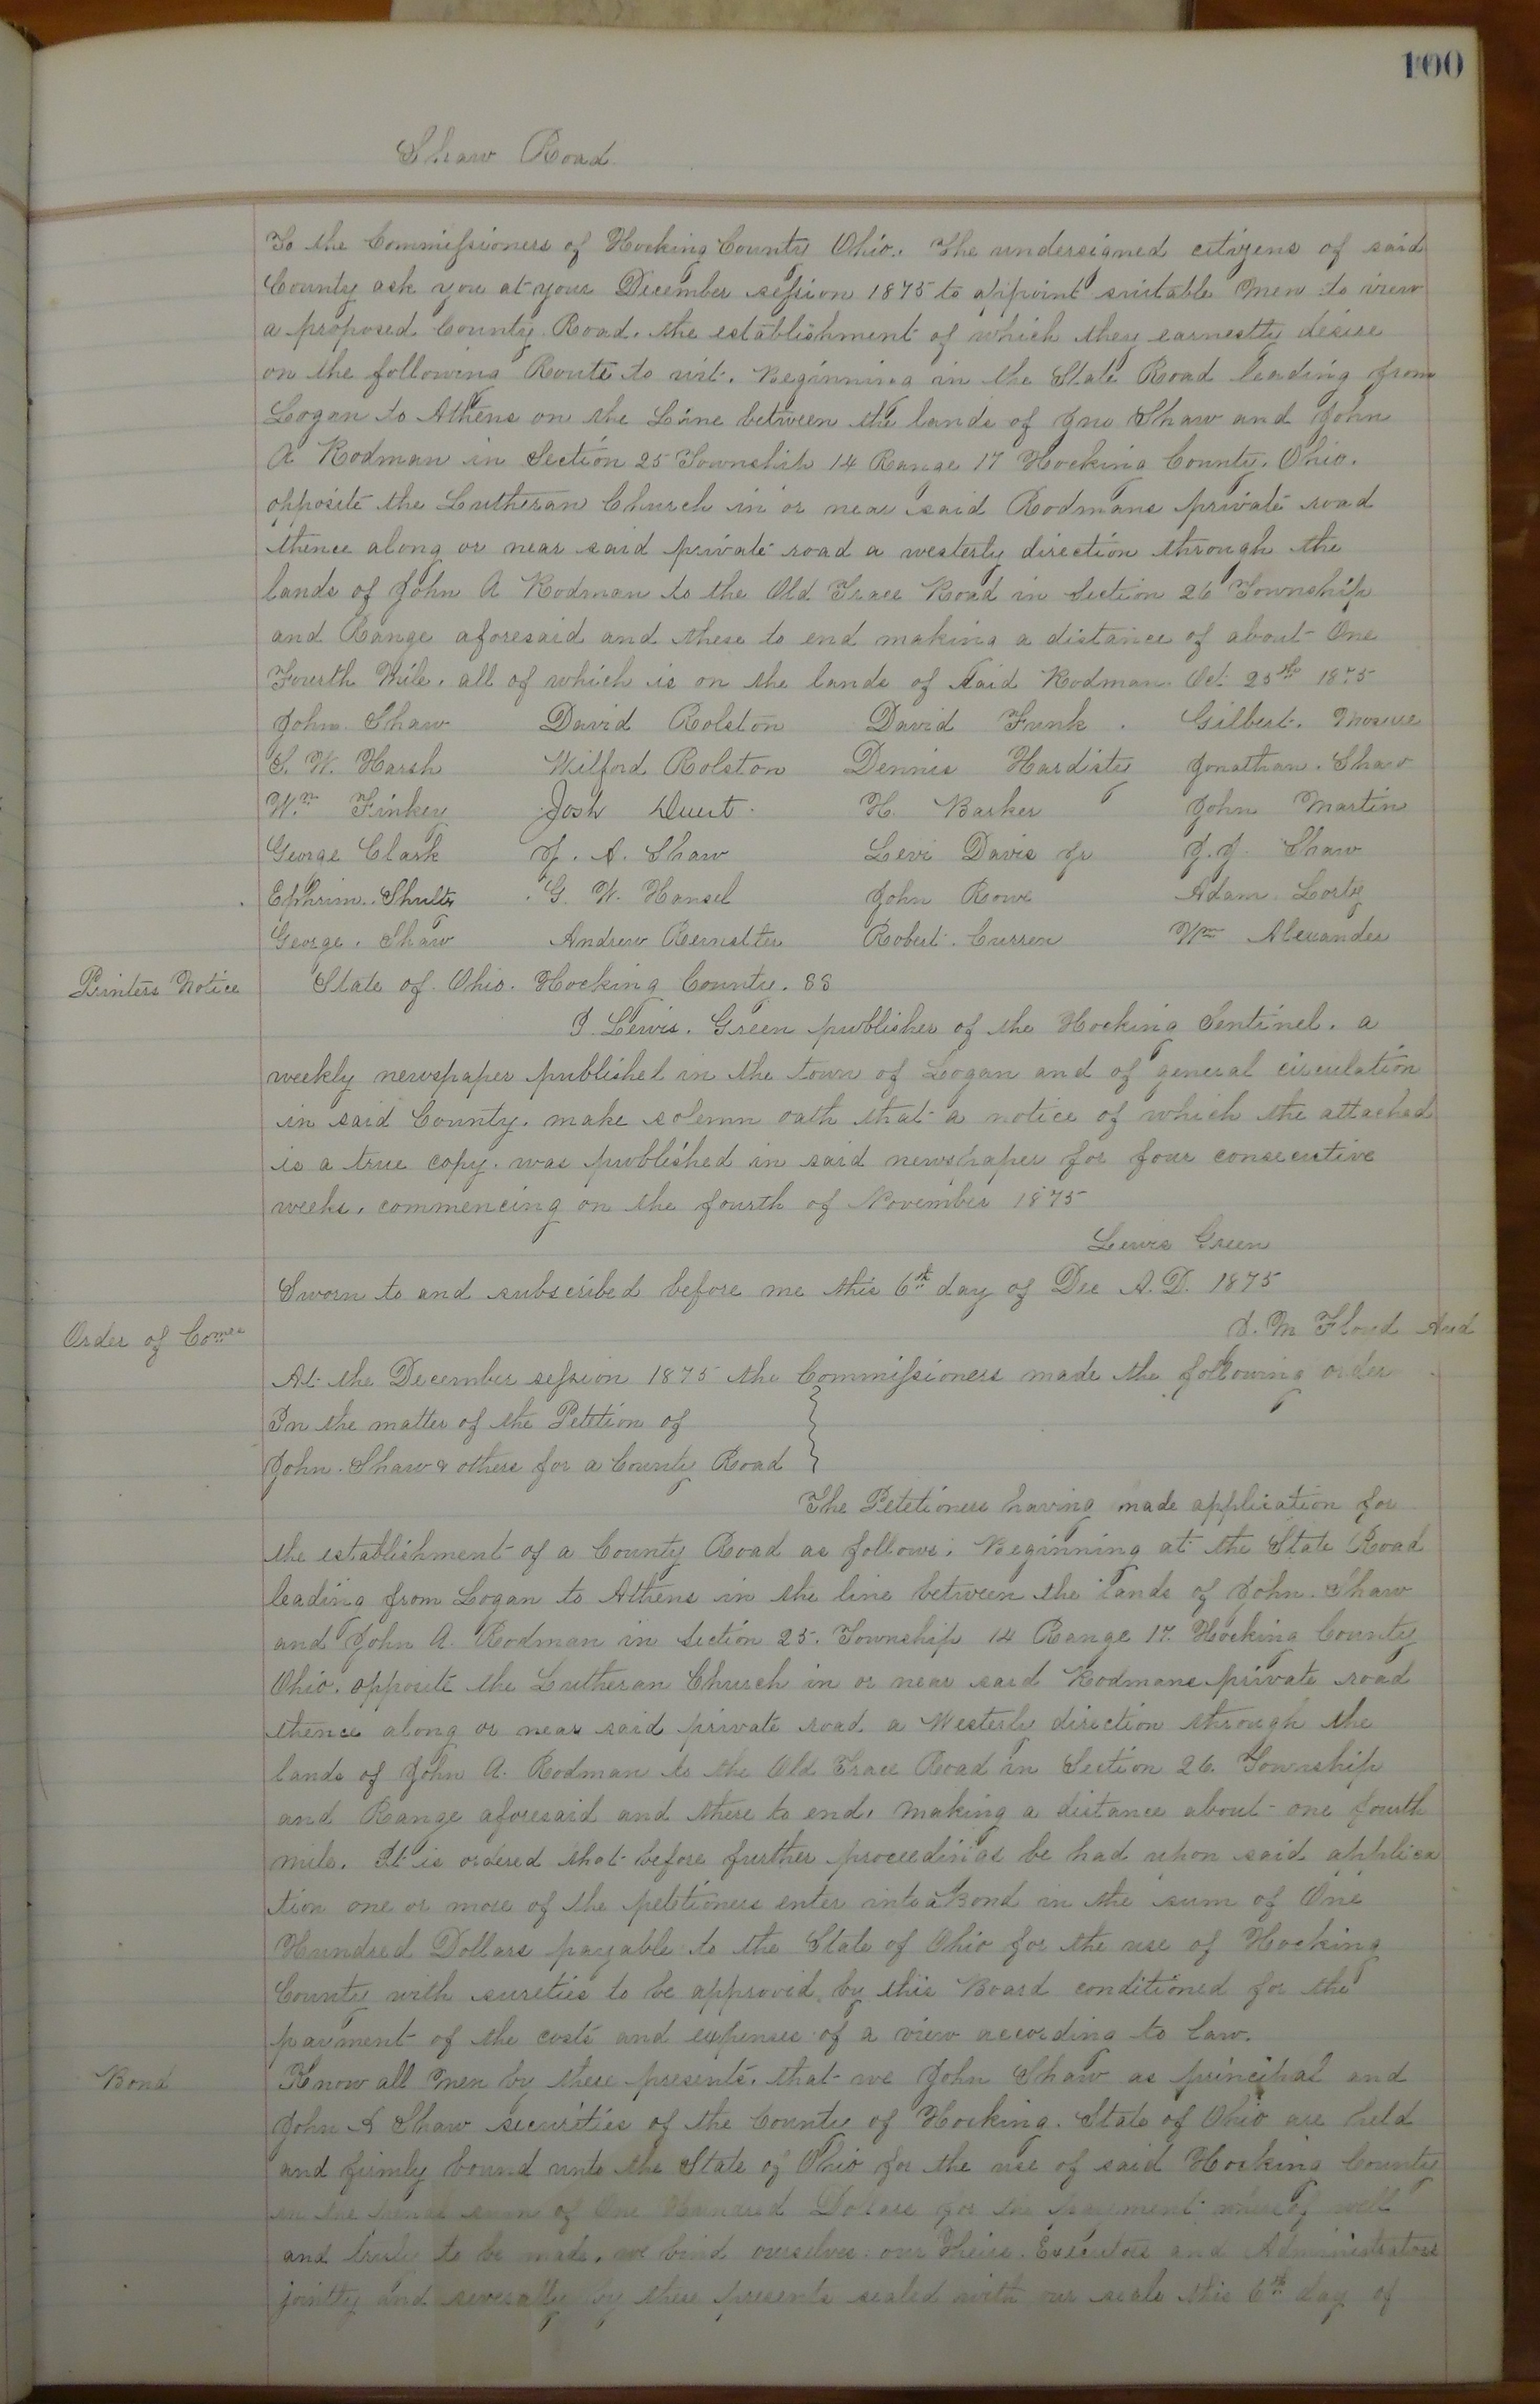 100
Shaw Road
To the Commissioners of Hocking County Ohio. The undersigned citizens of said
County ask you at your December session 1875 to appoint suitable men to view
a proposed County Road. the establishment of which they earnestly desire
on the following Route to wit. Beginning in the State Road leading from
Logan to Athens on the Line between the lands of Jno Shaw and John
A Rodman in Section 25 Township 14 Range 17 Hocking County. Ohio.
opposite the Lutheran Church in or near said Rodmans private road
thence along or near said private road a westerly direction through the
lands of John A Rodman to the Old Trace Road in Section 26 Township
and Range aforesaid and there to end making a distance of about One
Fourth Mile. all of which is on the lands of said Rodman. Oct 25th 1875
John Shaw David Rolston David Funk. Gilbert. Mosure
S. W. Harsh Wilford Rolston Dennis Hardisty Jonathan. Shaw
Wm Finkey Josh H. Barker John Martin
George Clark J. A. Shaw Levi Davis Jr J. J. Shaw
Ephrim. Shults G. W. Hansel John Rowe Adam
George. Shaw Andrew Robert. Curren Wm Alexander
Printers Notice State of Ohio. Hocking County. SS
I Lewis. Green publisher of the Hocking Sentinel. a
weekly newspaper published in the town of Logan and of general circulation
in said County. make solemn oath that a notice of which the attached
is a true copy. was published in said newspaper for four consecutive
weeks. commencing on the fourth of November 1875
Lewis Green
Sworn to and subscribed before me this 6th day of Dec A.D. 1875
Order of Comrs M Floyd Aud
At the December session 1875 the Commissioners made the following order
In the matter of the Petition of
John. Shaw & others for a County Road
The Petetioners having made application for
the establishment of a County Road as follows. Beginning at the State Road
leading from Logan to Athens in the line between the lands of John. Shaw
and John A. Rodman in Section 25. Township 14 Range 17. Hocking County
Ohio. opposite the Lutheran Church in or near said Rodmans private road
thence along or near said private road a Westerly direction through the
lands of John A. Rodman to the Old Trace Road in Section 26. Township
and Range aforesaid and there to end. making a distance about one fourth
mile. It is ordered that before further proceedings be had upon said applica
tion one or more of the petetioners enter into a Bond in the sum of One
Hundred Dollars payable to the State of Ohio for the use of Hocking
County with sureties to be approved by this Board conditioned for the
payment of the costs and expenses of a view according to law.
Bond Know all men by these presents. that we John Shaw as principal and
John A Shaw securities of the County of Hocking. State of Ohio are held
and firmly bound unto the State of Ohio for the use of said Hocking County
in the penal sum of One Hundred Dollars for the payment whereof well
and truly to be made. we bind ourselves our Heirs. Executors and Administrators
jointly and severally by these presents sealed with our seals this 6th day of